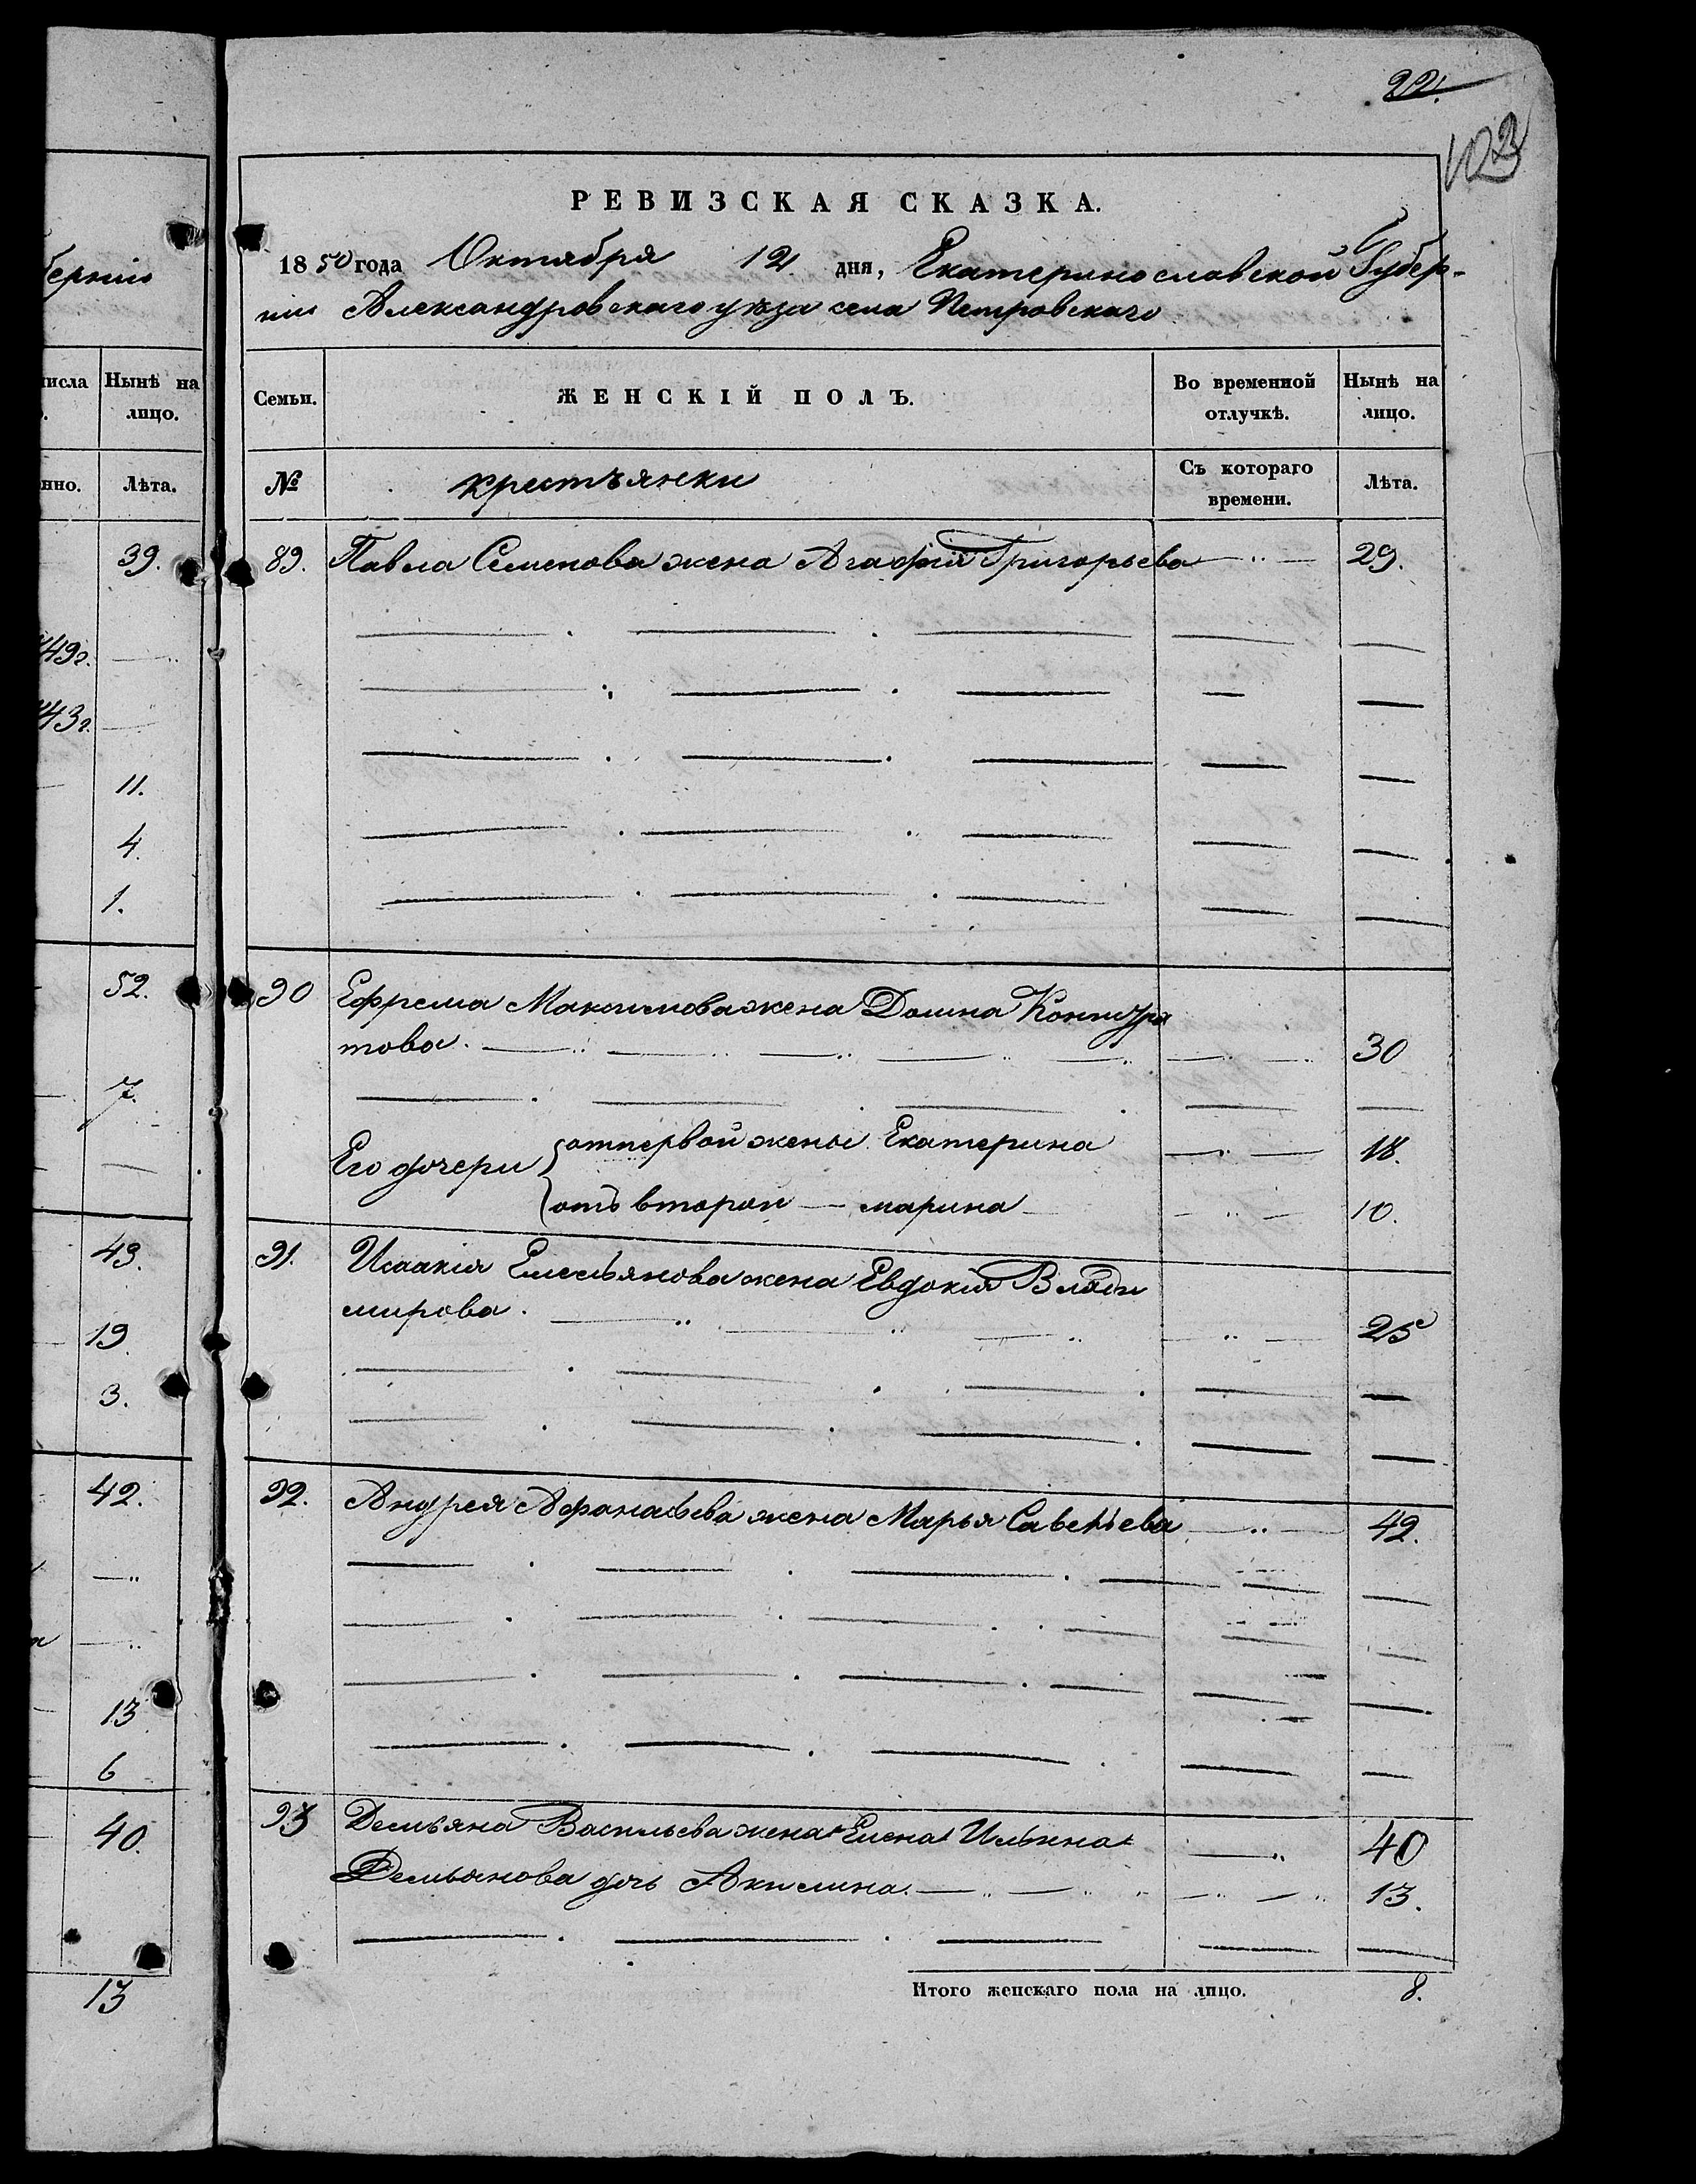 22.
103
РЕВИЗСКАЯ СКАЗКА.
1850 года Октября 12 дня, Екатеринославской Губер-
нии Александровскаго уѣза села Петровскаго
Семьи.
ЖЕНСКІЙ ПОЛЪ.
Во временной отлучкѣ.
Нынѣ на лицо.
№
крестъянки
Съ котораго времени.
Лѣта.
89. Павла Семенова жена Агафия Григорьева — " — 29.
90 Ефрема Максимова жена Домна Кондра
това. 30
Его дочери
отпервой жены Екатерина 18.
отъ второй — марина 10.
91. Исаакия Емельянова жена Евдокия Влади
мирова. 25
92. Андрея Афанасьева жена Марья Савельева 42.
93 Демьяна Васильева жена Елена Ильина 40
Демьянова дочь Акилина. 13.
Итого женскаго пола на лицо. 8.
берніи
числа
Нынѣ на лицо.
нно.
Лѣта.
39.
49г.
43г.
11.
4.
1.
52.
7.
43.
19.
3.
42.
13
6
40.
13